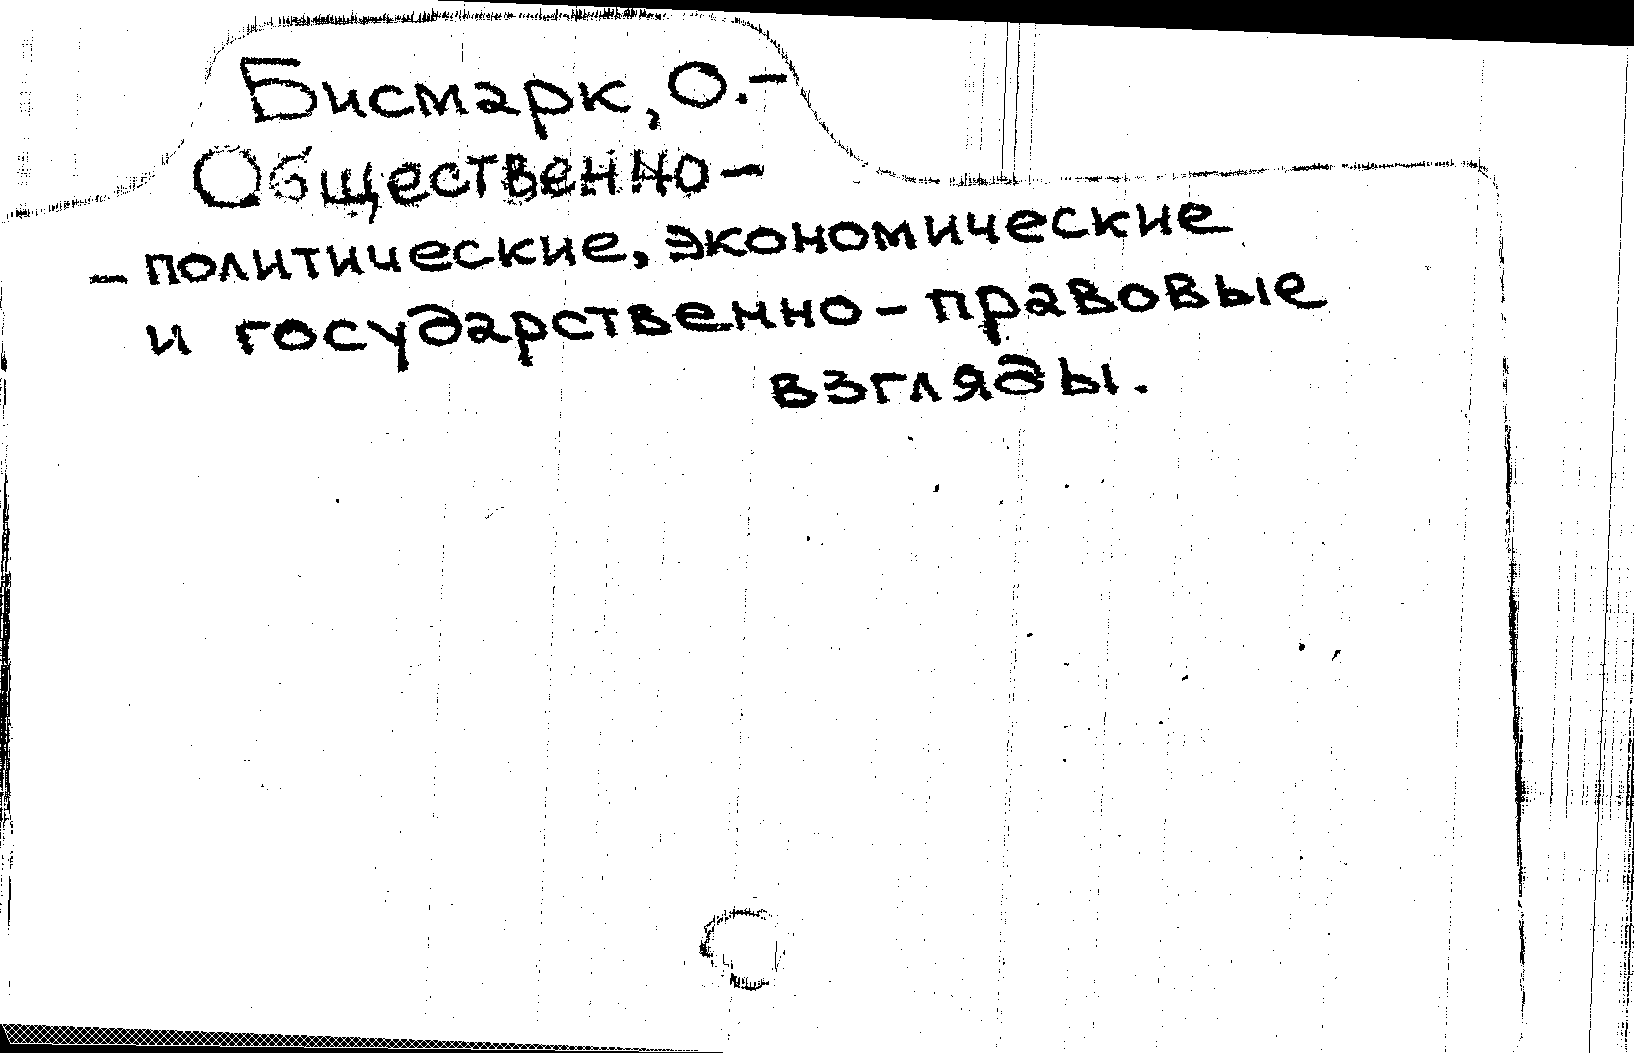 Бисмарк, О.-
Общественно-
-политические, экономические
и государственно-правовые
взгляды.